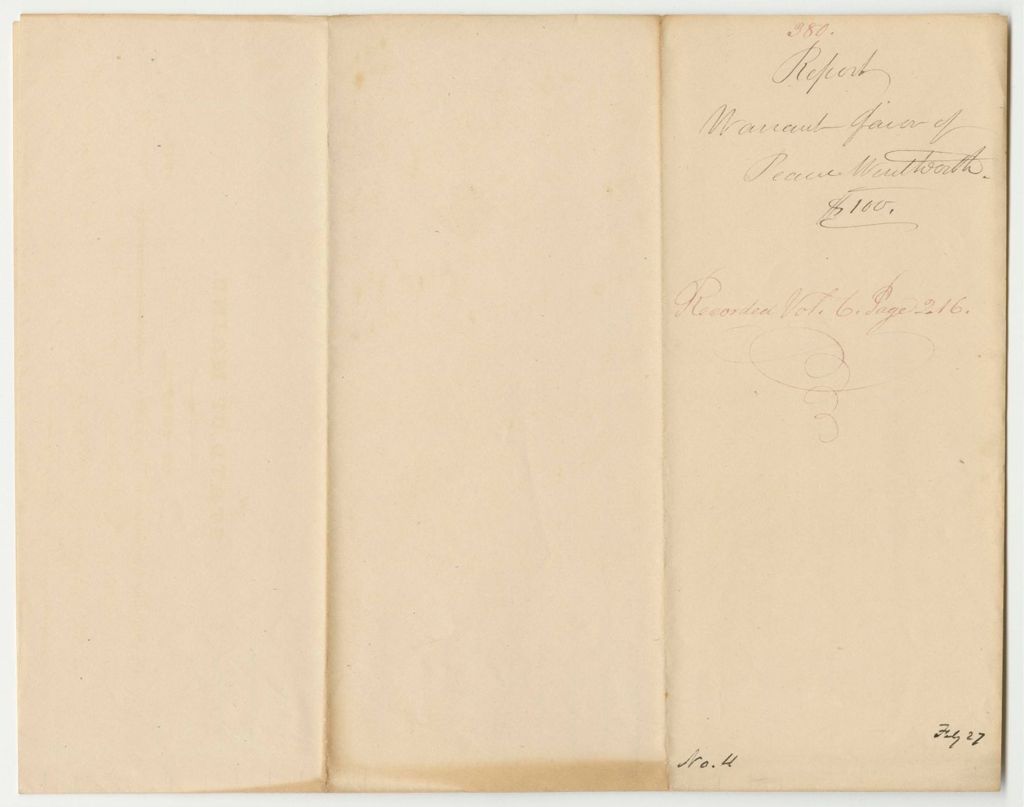 380.
Report
Warrant favor of
Wentworth.
$100.
Recorded Vol. 6. Page 216.
Feby 27
No. 4